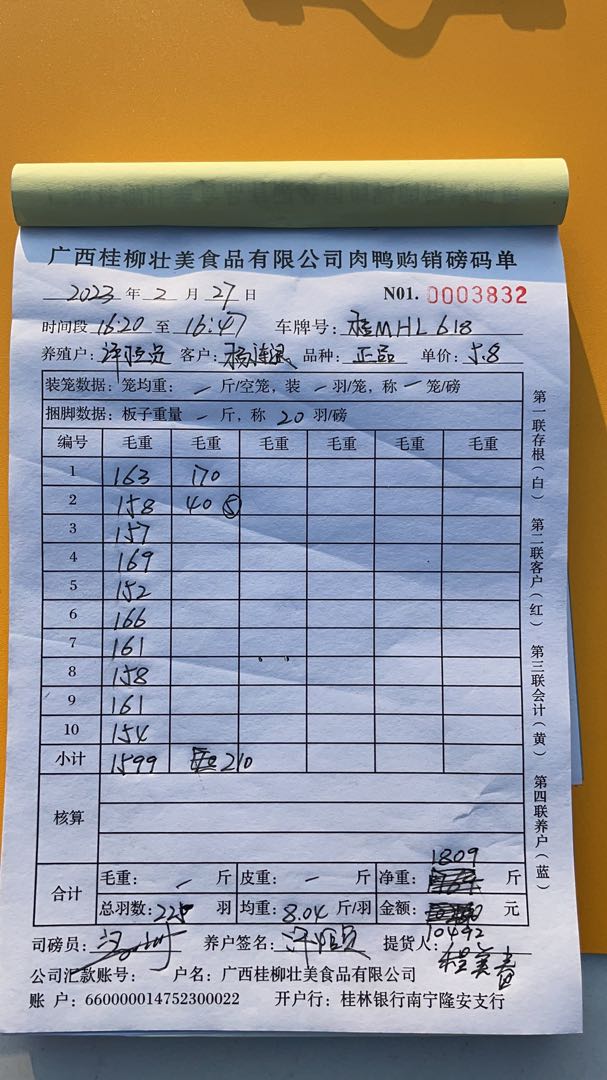 广西桂柳壮美食品有限公司肉鸭购销磅码单
2023 年 2 月 27 日 N01. 0003832
时间段 16:20 至 16:47 车牌号: 桂MHL618
养殖户: 客户: 品种: 正品 单价: 5.8
装笼数据: 笼均重: - 斤/空笼, 装 - 羽/笼, 称 - 笼/磅
捆脚数据: 板子重量 - 斤, 称 20 羽/磅
编号 毛重 毛重 毛重 毛重 毛重 毛重
1 163 170
2 158 40 ⑤
3 157
4 169
5 152
6 166
7 161
8 158
9 161
10 154
小计 1599 210
核算
1809
合计 毛重: - 斤 皮重: - 斤 净重: 斤
总羽数: 225 羽 均重: 8.04 斤/羽 金额: 元
10492
司磅员: 养户签名: 提货人:
公司汇款账号: 户名: 广西桂柳壮美食品有限公司
账 户: 660000014752300022 开户行: 桂林银行南宁隆安支行
第一联存根(白) 第二联客户(红) 第三联会计(黄) 第四联养户(蓝)